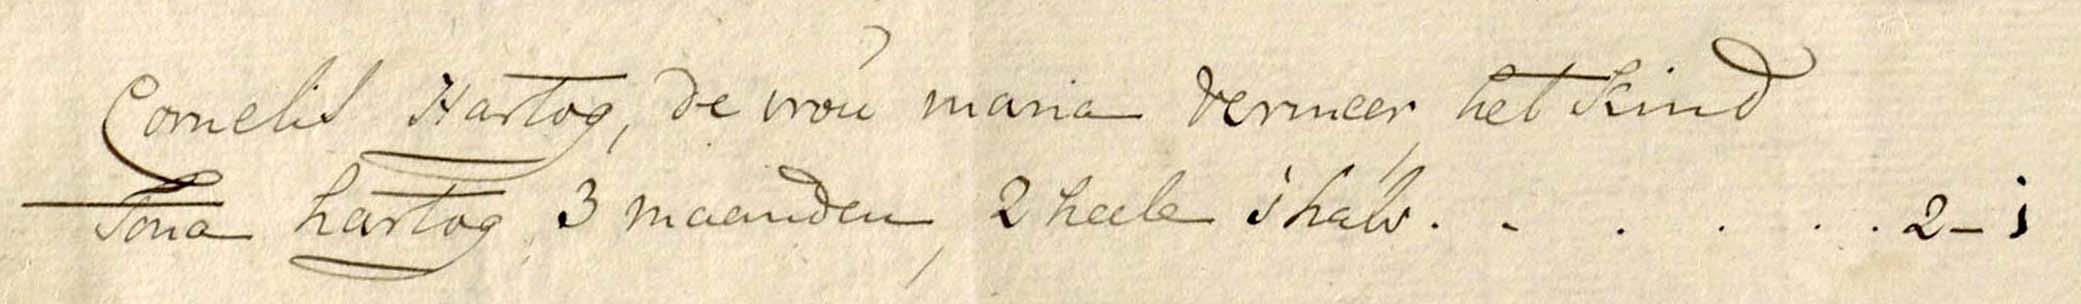 Cornelis Hartog, de vroú maria Vermeer, het kind
Tona hartog 3 maanden, 2 heele i halv. . . . . . . 2 - i